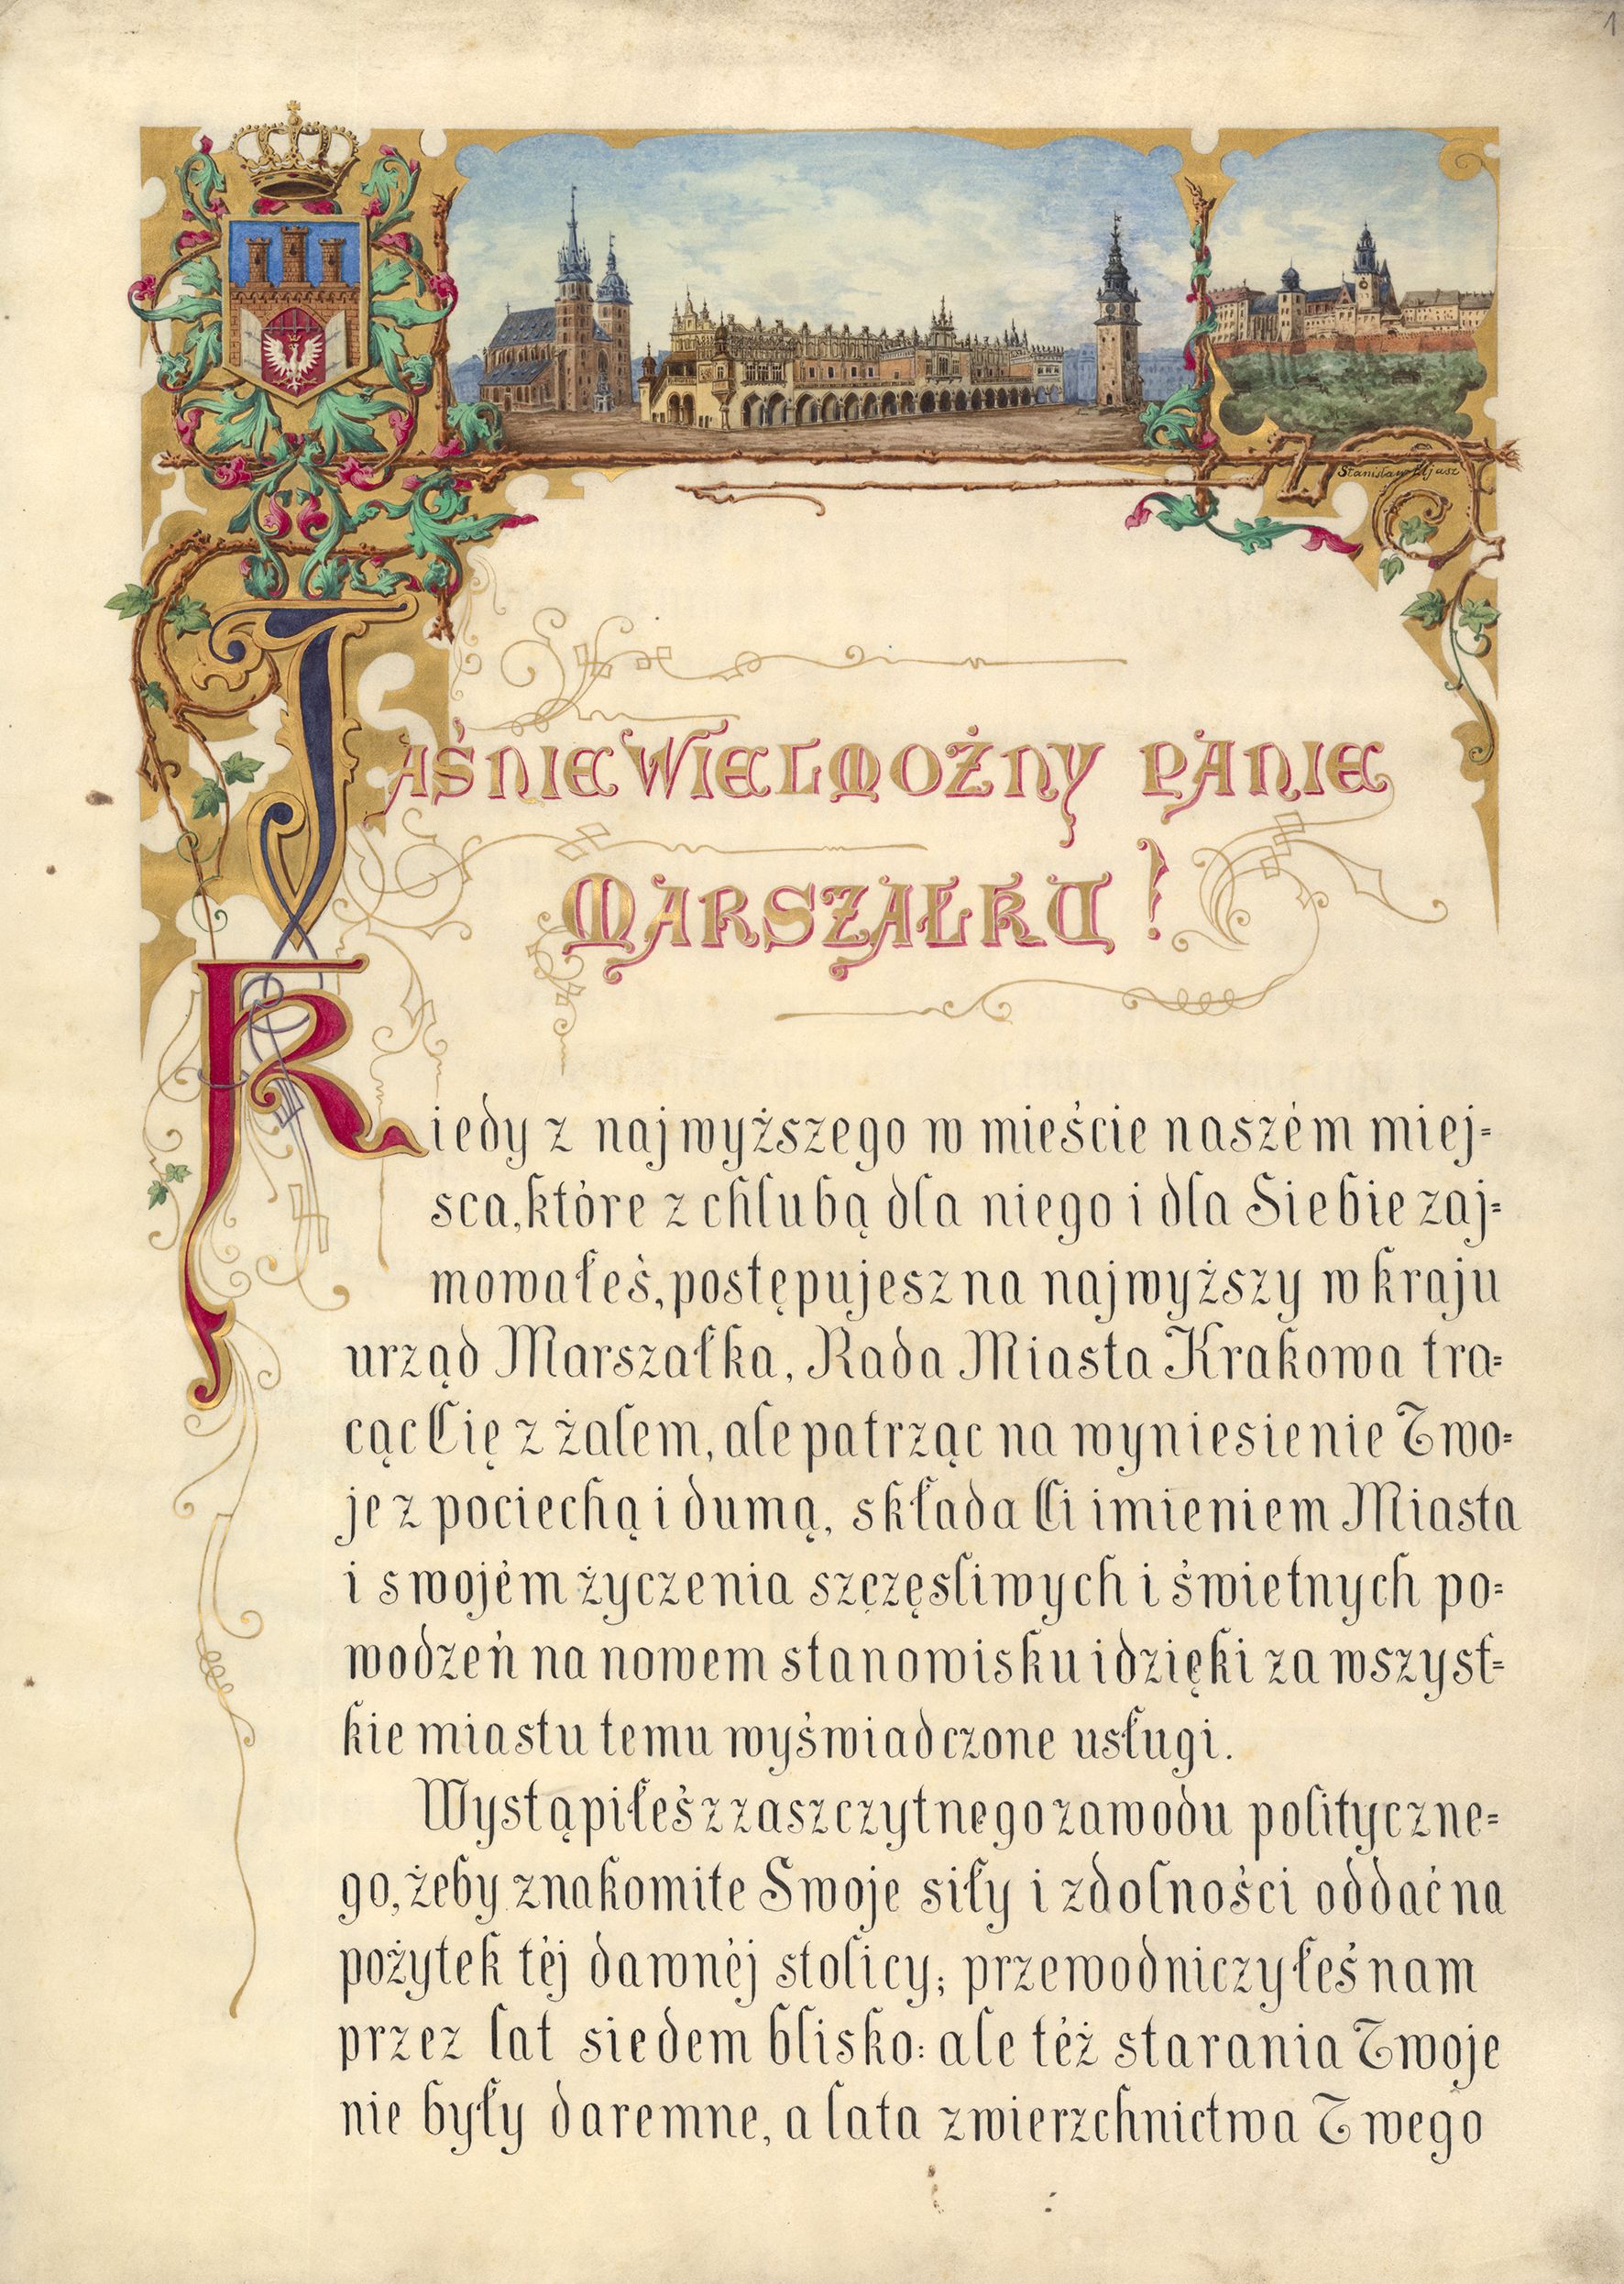 1
Stanisław Eljasz
JAŚNIE WIELMOŻNY PANIE
MARSZAŁKU!
Kiedy z najwyższego w mieście naszém miej=
sca, które z chlubą dla niego i dla Siebie zaj=
mowałeś, postępujesz na najwyższy w kraju
urząd Marszałka, Rada Miasta Krakowa tra=
cąc Cię z żalem, ale patrząc na wyniesienie Two=
je z pociechą i dumą, składa Ci imieniem Miasta
i swojém życzenia szczęsliwych i świetnych po=
wodzeń na nowem stanowisku i dzięki za wszyst=
kie miastu temu wyświadczone usługi.
Wystąpiłeś z zaszczytnego zawodu polityczne=
go, żeby znakomite Swoje siły i zdolności oddać na
pożytek téj dawnéj stolicy; przewodniczyłeś nam
przez lat siedem blisko: ale téż starania Twoje
nie były daremne, a lata zwierzchnictwa Twego